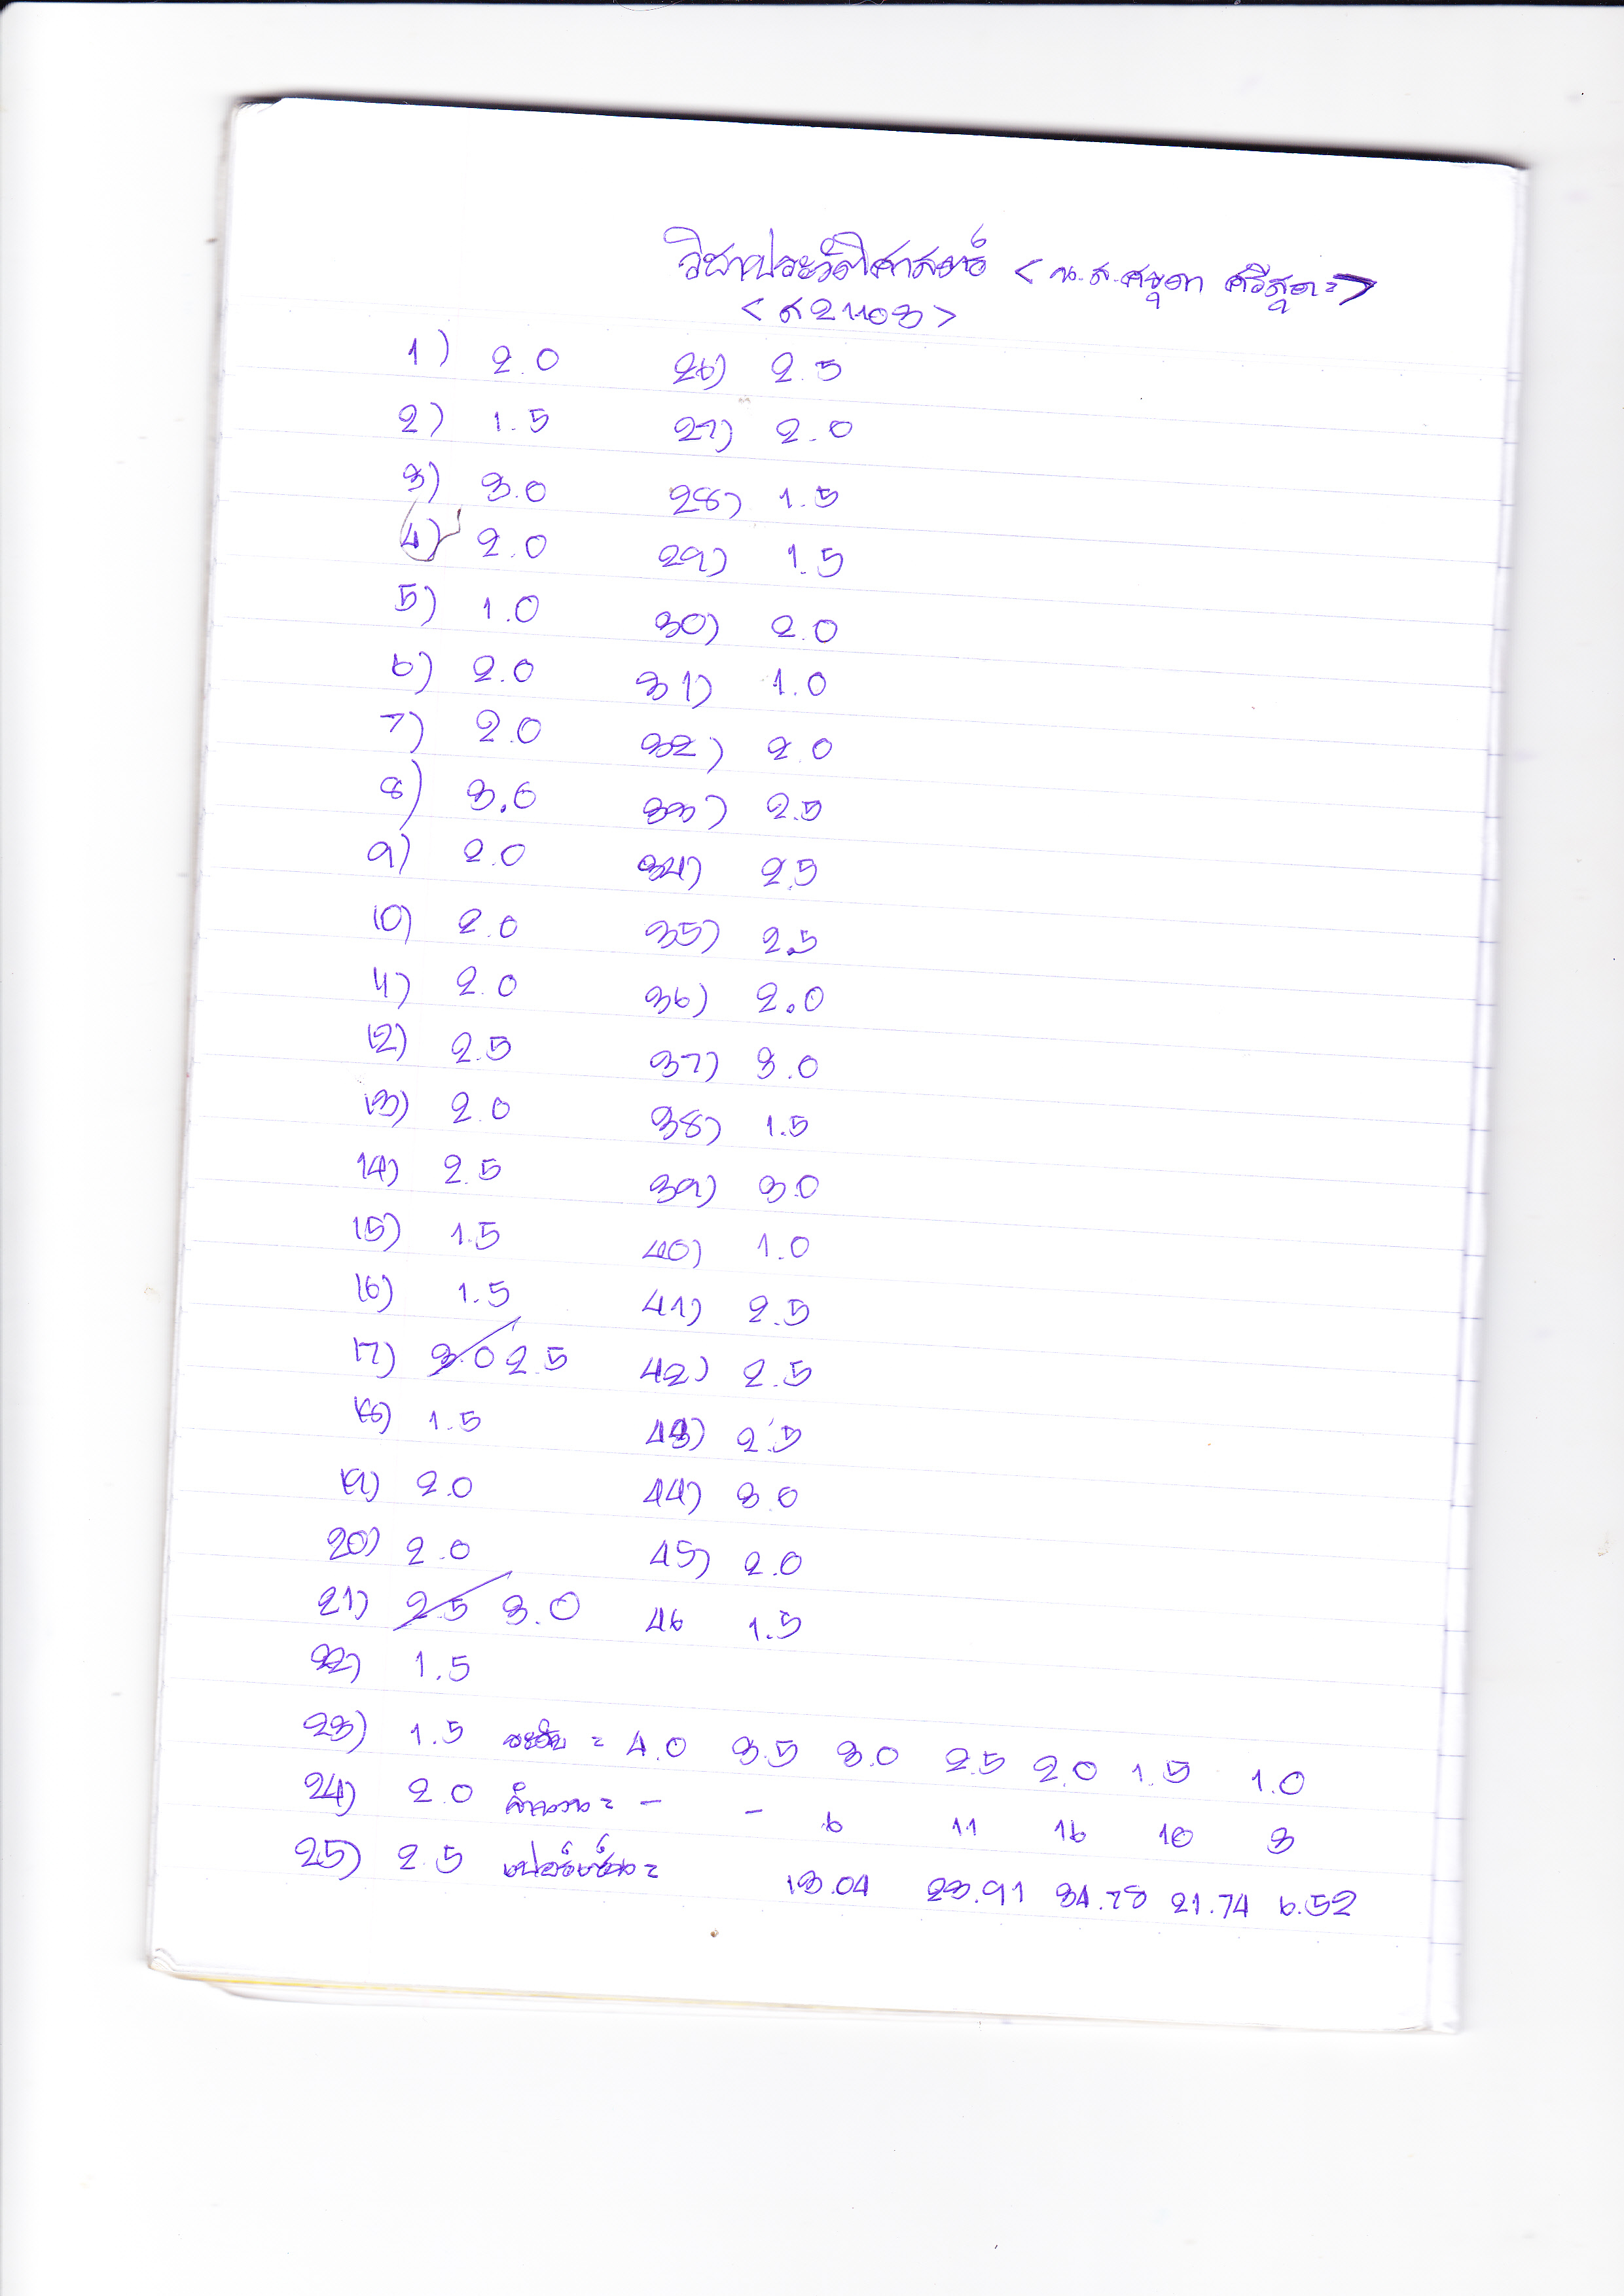 วิชาประวัติศาสตร์ < น.ส.ศชุดา ศรีสุตะ >
< ส 21103 >
1) 2.0 26) 2.5
2) 1.5 27) 2.0
3) 3.0 28) 1.5
4) 2.0 29) 1.5
5) 1.0 30) 2.0
6) 2.0 31) 1.0
7) 2.0 32) 2.0
8) 3.0 33) 2.5
9) 2.0 34) 2.5
10) 2.0 35) 2.5
11) 2.0 36) 2.0
12) 2.5 37) 3.0
13) 2.0 38) 1.5
14) 2.5 39) 3.0
15) 1.5 40) 1.0
16) 1.5 41) 2.5
17) 3.0 2.5 42) 2.5
18) 1.5 43) 2.5
19) 2.0 44) 3.0
20) 2.0 45) 2.0
21) 2.5 3.0 46 1.5
22) 1.5
23) 1.5 = 4.0 3.5 3.0 2.5 2.0 1.5 1.0
24) 2.0 จำนวน = - - 6 11 16 10 3
25) 2.5 เปอร์เซ็น = 13.04 23.91 34.78 21.74 6.52